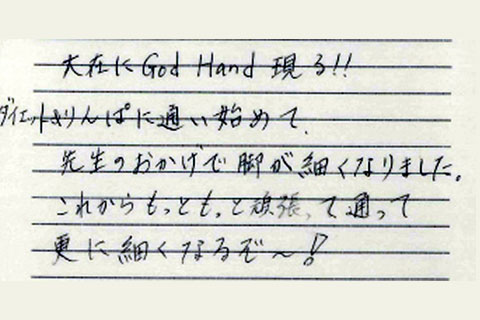 大在にGod Hand 現る!!
ダイエットとりんぱに通い始めて、
先生のおかげで脚が細くなりました。
これからもっともっと頑張って通って
更に細くなるぞ〜!